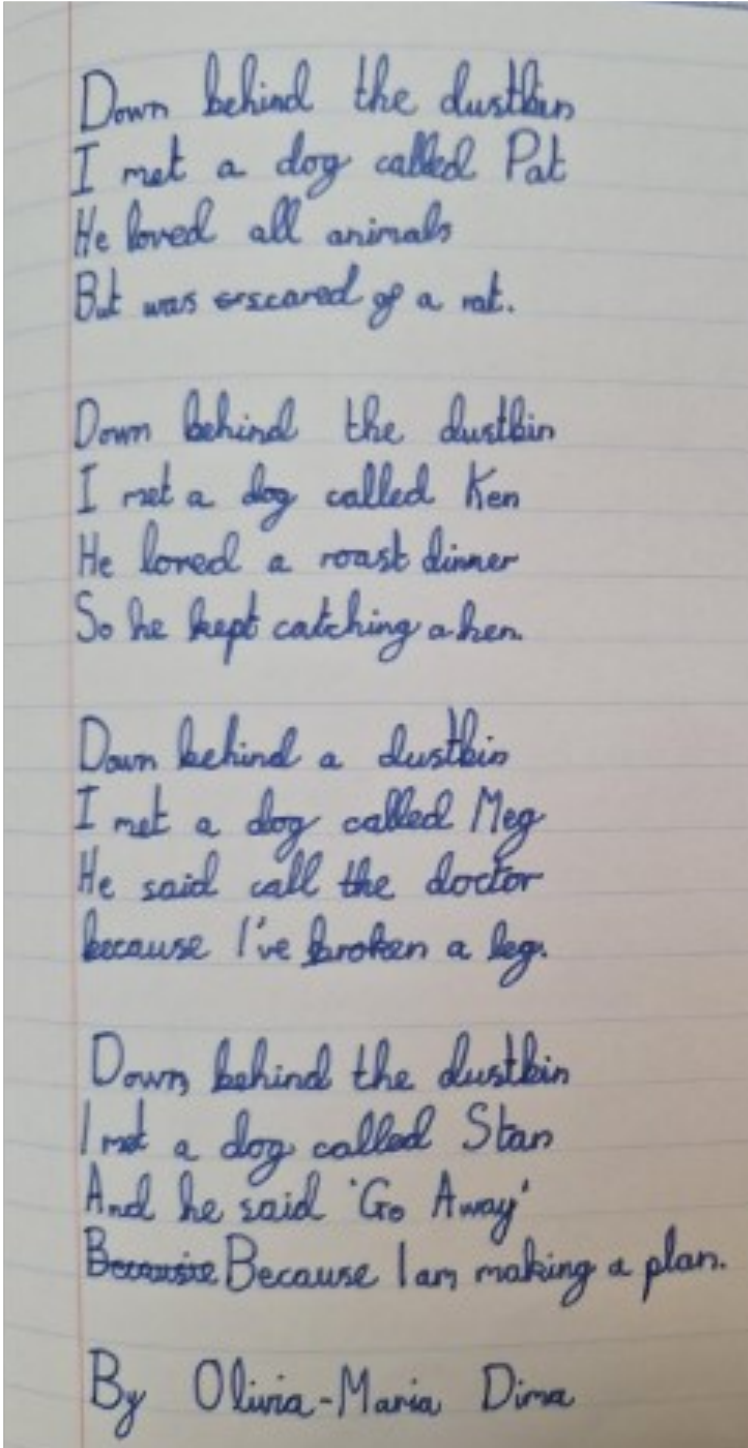 Down behind the dustbin
I met a dog called Pat
He loved all animals
But was scared of a rat.
Down behind the dustbin
I met a dog called Ken
He loved a roast dinner
So he kept catching a hen.
Down behind a dustbin
I met a dog called Meg
He said call the doctor
because I've broken a leg.
Down behind the dustbin
I met a dog called Stan
And he said 'Go Away'
Because Because I am making a plan.
By Olivia-Maria Dima